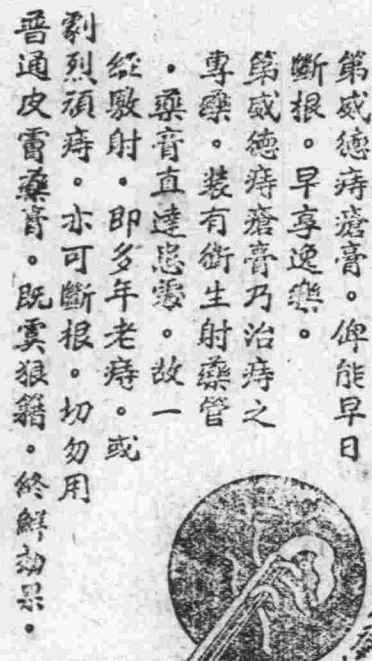 第威德痔瘡膏。俾能早日
斷根。早享逸樂。
第威德痔瘡膏乃治痔之
專藥。裝有衛生射藥管
。藥膏直達患處。故一
經敷射。即多年老痔。或
劇烈頑痔。亦可斷根。切勿用
普通皮膚藥膏。既虞狼籍。終鮮効果。